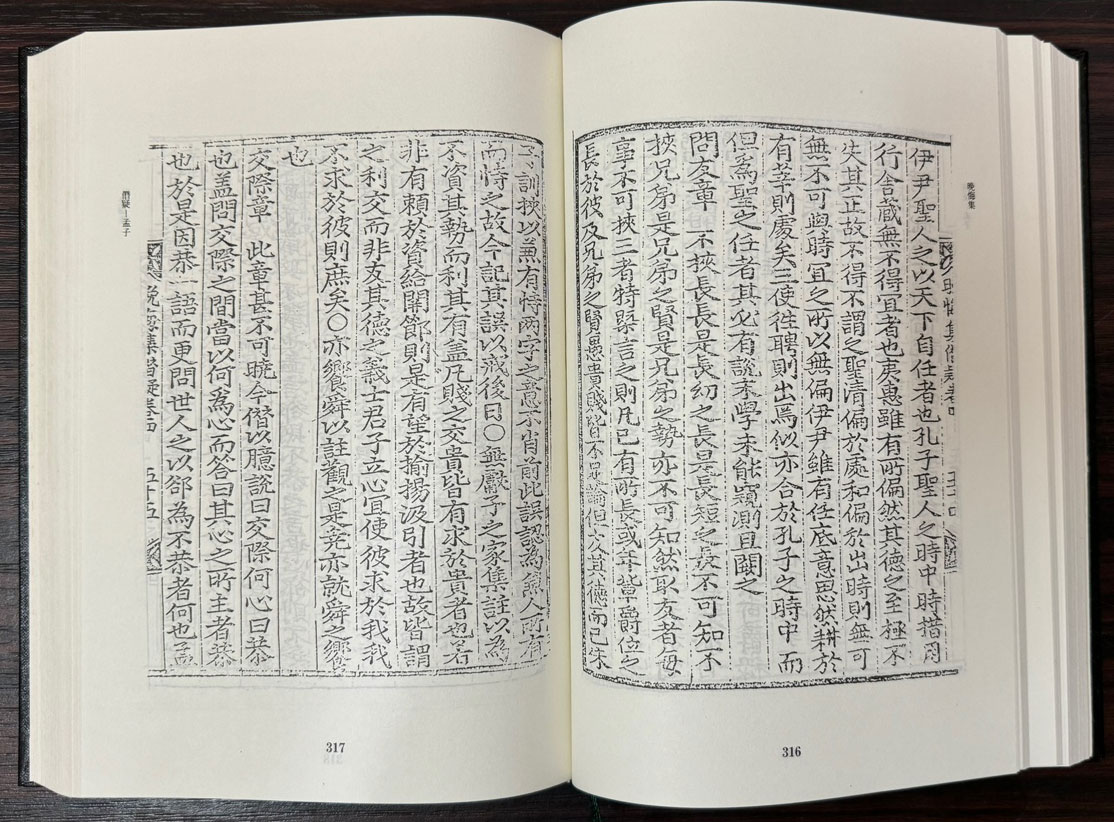 晩悔集
伊尹聖人之以天下自任者也孔子聖人之時中時措用
行舍藏無不得宜者也夷惠雖有所偏然其德之至極不
失其正故不得不謂之聖清偏於處和偏於出時則無可
無不可與時宜之所以無偏伊尹雖有任底意思然耕於
有莘則處矣三使徃聘則出焉似亦合於孔子之時中而
但爲聖之任者其必有說末學未能窺測且闕之
問友章 不挾長長是長幼之長是長短之長不可知不
挾兄弟是兄弟之賢是兄弟之勢亦不可知然取友者每
事不可挾三者特擧言之則凡己有所長或年輩爵位之
長於彼及兄弟之賢愚貴賤皆不足論但友其德而已朱
316
子訓挾以兼有恃兩字之意不肖前此誤認爲兼人所有
而恃之故今記其誤以戒後日○無獻子之家集註以爲
不資其勢而利其有盖凡賤之交貴皆有求於貴者也若
非有賴於資給關節則是有望於揄揚汲引者也故皆謂
之利交而非友其德之義士君子立心宜使彼求於我我
不求於彼則庶矣○亦饗舜以註觀之是堯亦就舜之饗
也
交際章 此章甚不可曉今僭以臆說曰交際何心曰恭
也盖問交際之間當以何爲心而答曰其心之所主者恭
也於是因恭一語而更問世人之以郤爲不恭者何也孟
晩悔集僭疑卷四 五十五
潛疑－孟子
317